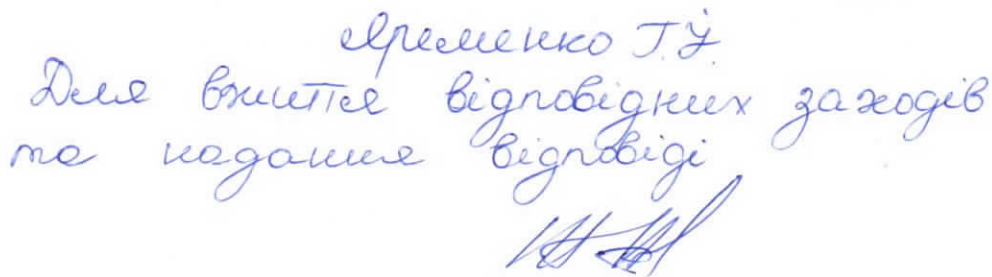 Яременко Г.У.
Для вжиття відповідних заходів
та надання відповіді